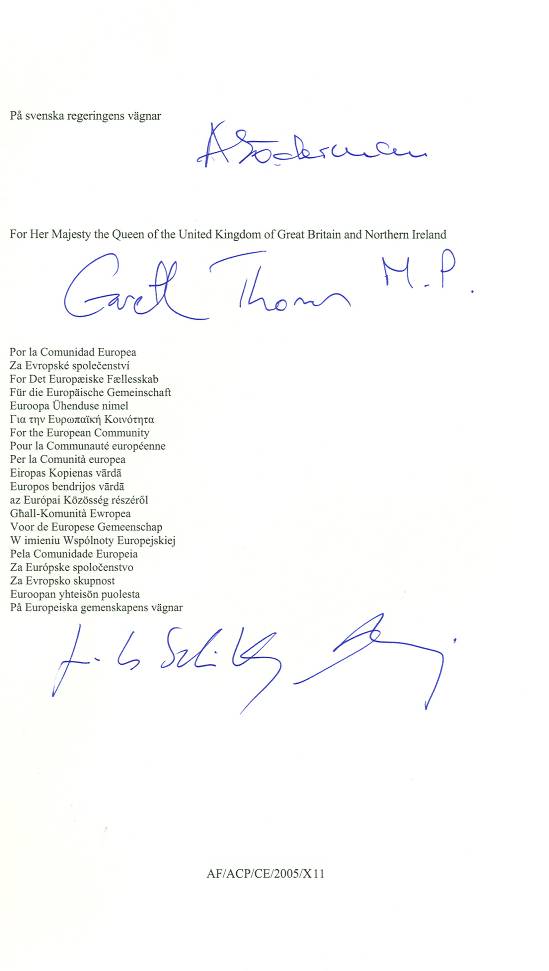 På svenska regeringens vägnar
A Söderman
For Her Majesty the Queen of the United Kingdom of Great Britain and Northern Ireland
Gareth Thomas M.P.
Por la Comunidad Europea
Za Evropské společenství
For Det Europæiske Fællesskab
Für die Europäische Gemeinschaft
Euroopa Ühenduse nimel
Για την Ευρωπαϊκή Κοινότητα
For the European Community
Pour la Communauté européenne
Per la Comunità europea
Eiropas Kopienas vārdā
Europos bendrijos vārdā
az Európai Közösség részéről
Għall-Komunità Ewropea
Voor de Europese Gemeenschap
W imieniu Wspólnoty Europejskiej
Pela Comunidade Europeia
Za Európske spoločenstvo
Za Evropsko skupnost
Euroopan yhteisön puolesta
På Europeiska gemenskapens vägnar
AF/ACP/CE/2005/X11